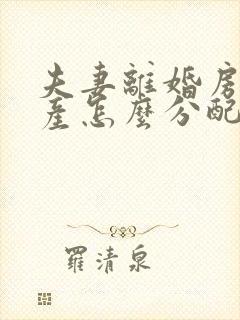 夫妻離婚房
產怎麼分配
羅清泉